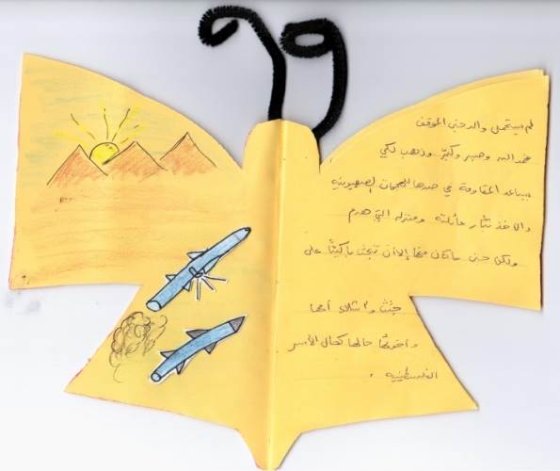 لم يستحمل والد حنى الموقف
حمد الله وصبر وكبّر وذهب لكي
يساعد المقاومة في صدها للهجمات الصهيونية
والأخذ بثأر عائلته ومنزله التي هدم
ولكن حنى ما كان منها إلا أن باكيتًا على
جثث وأشلاء أمها
وأخوتها حالها كحال الأسر
الفلسطينية .